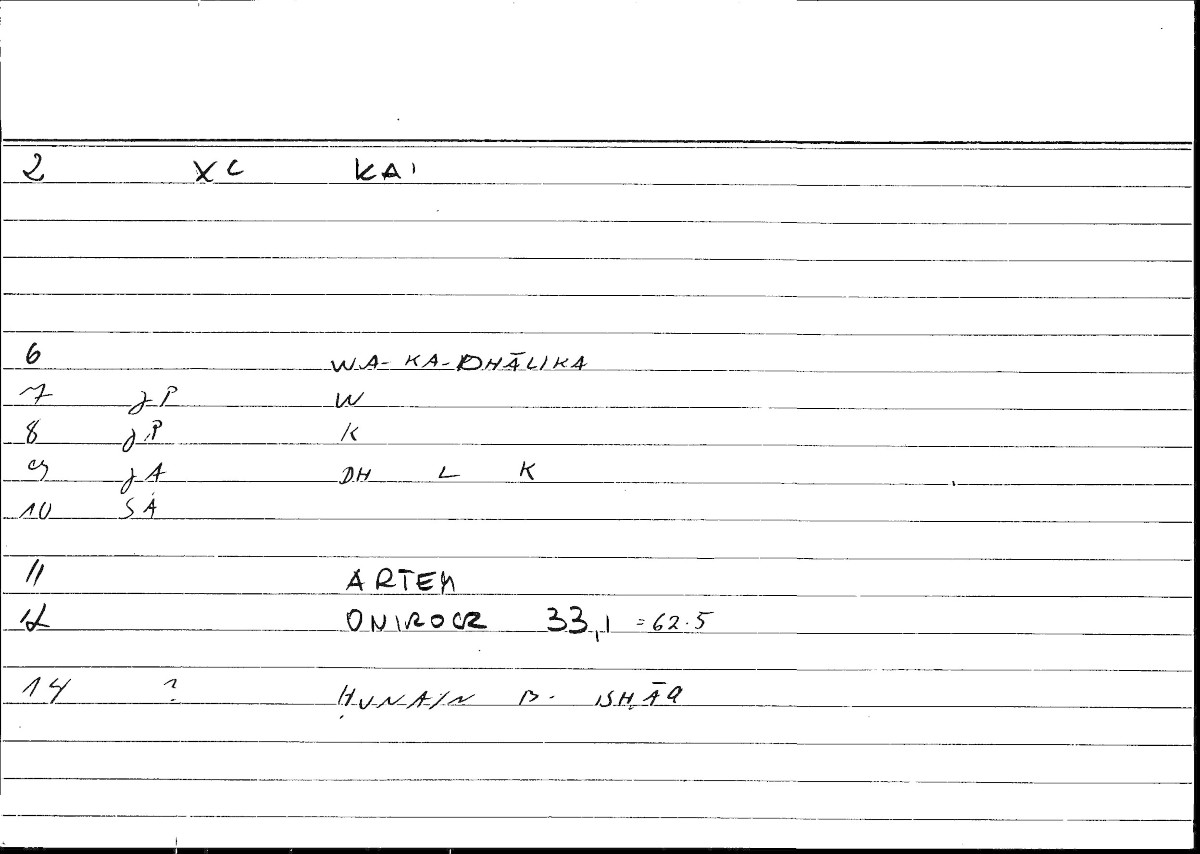 2 XC KAI
6 WA-KA-DHĀLIKA
7 JP W
8 JP K
9 JA DH L K
10 SA
11 ARTEM
12 ONIROCR 33,1 =62.5
14 ? ḤUNAIN B. ISḤĀQ